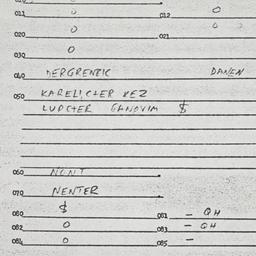 011 0 012 0
020 0 021 0
030 0
040 DERGRENTIC DANEN
050 KARELICLER KEZ
LUPCTER GANOVIM $
060 NONT
070 NENTER
080 $ 081 - QH
082 0 083 - QH
084 0 085 -